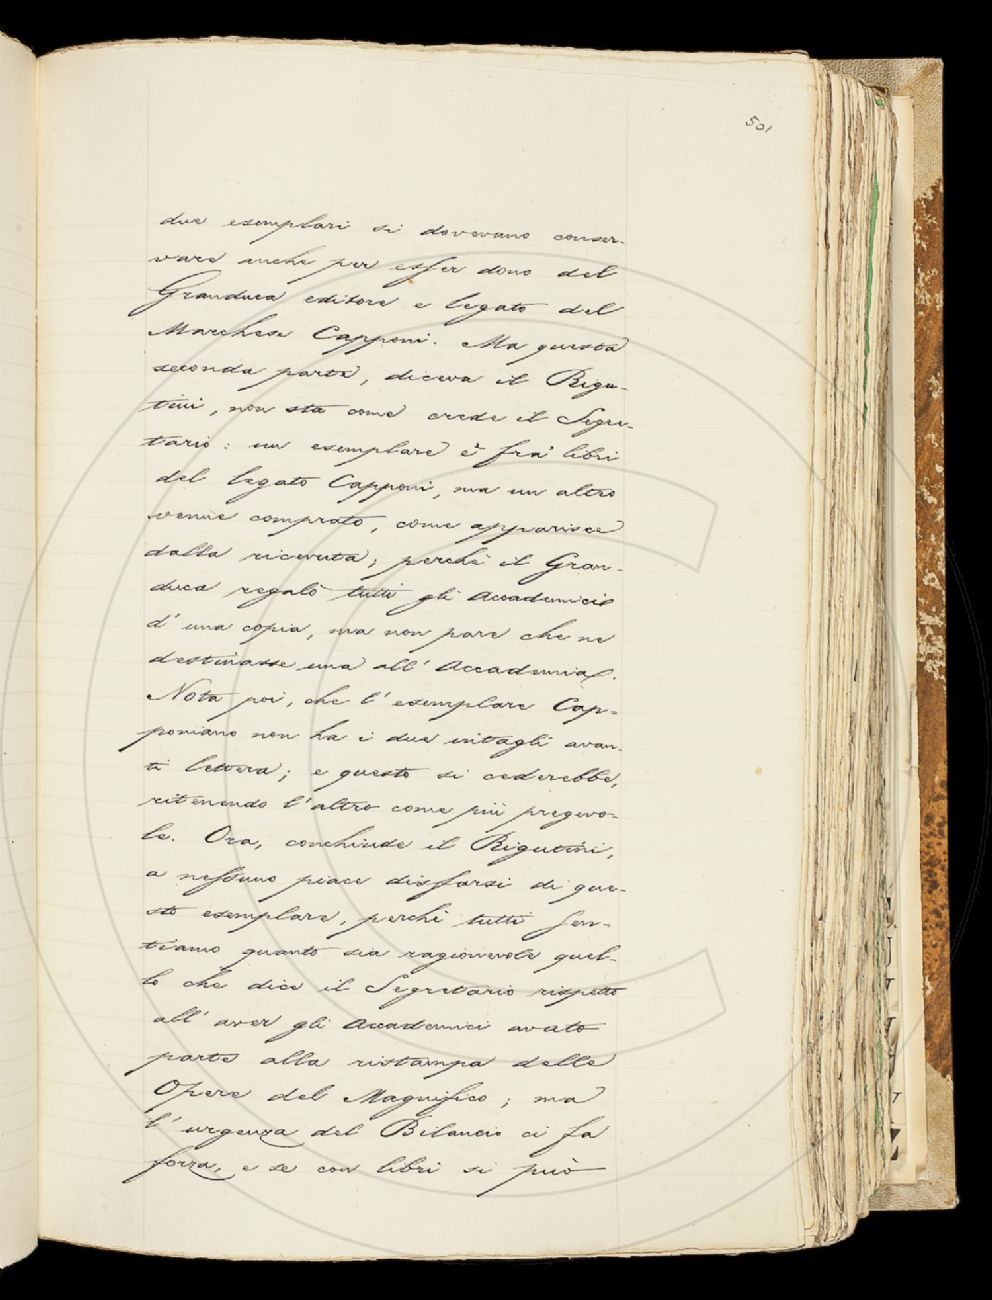 501
due esemplari si dovevano conser-
vare anche per esser dono del
Granduca editore e legato del
Marchese Capponi. Ma questa
seconda parte, diceva il Rigu-
tini, non sta come crede il Segre-
tario: un esemplare è fra' libri
del legato Capponi, ma un altro
venne comprato, come apparisce
dalla ricevuta; perché il Gran-
duca regalò tutti gli Accademici
d'una copia, ma non pare che ne
destinasse una all'Accademia.
Nota poi, che l'esemplare Cap-
poniano non ha i due intagli avan-
ti lettera; e questo si cederebbe,
ritenendo l'altro come più pregevo-
le. Ora, conchiude il Rigutini,
a nessuno piace disfarsi di que-
sto esemplare, perchè tutti sen-
tiamo quanto sia ragionevole quel-
lo che dice il Segretario rispetto
all'aver gli Accademici avuto
parte alla ristampa delle
Opere del Magnifico; ma
l'urgenza del Bilancio ci fa
forza, e se con libri si può